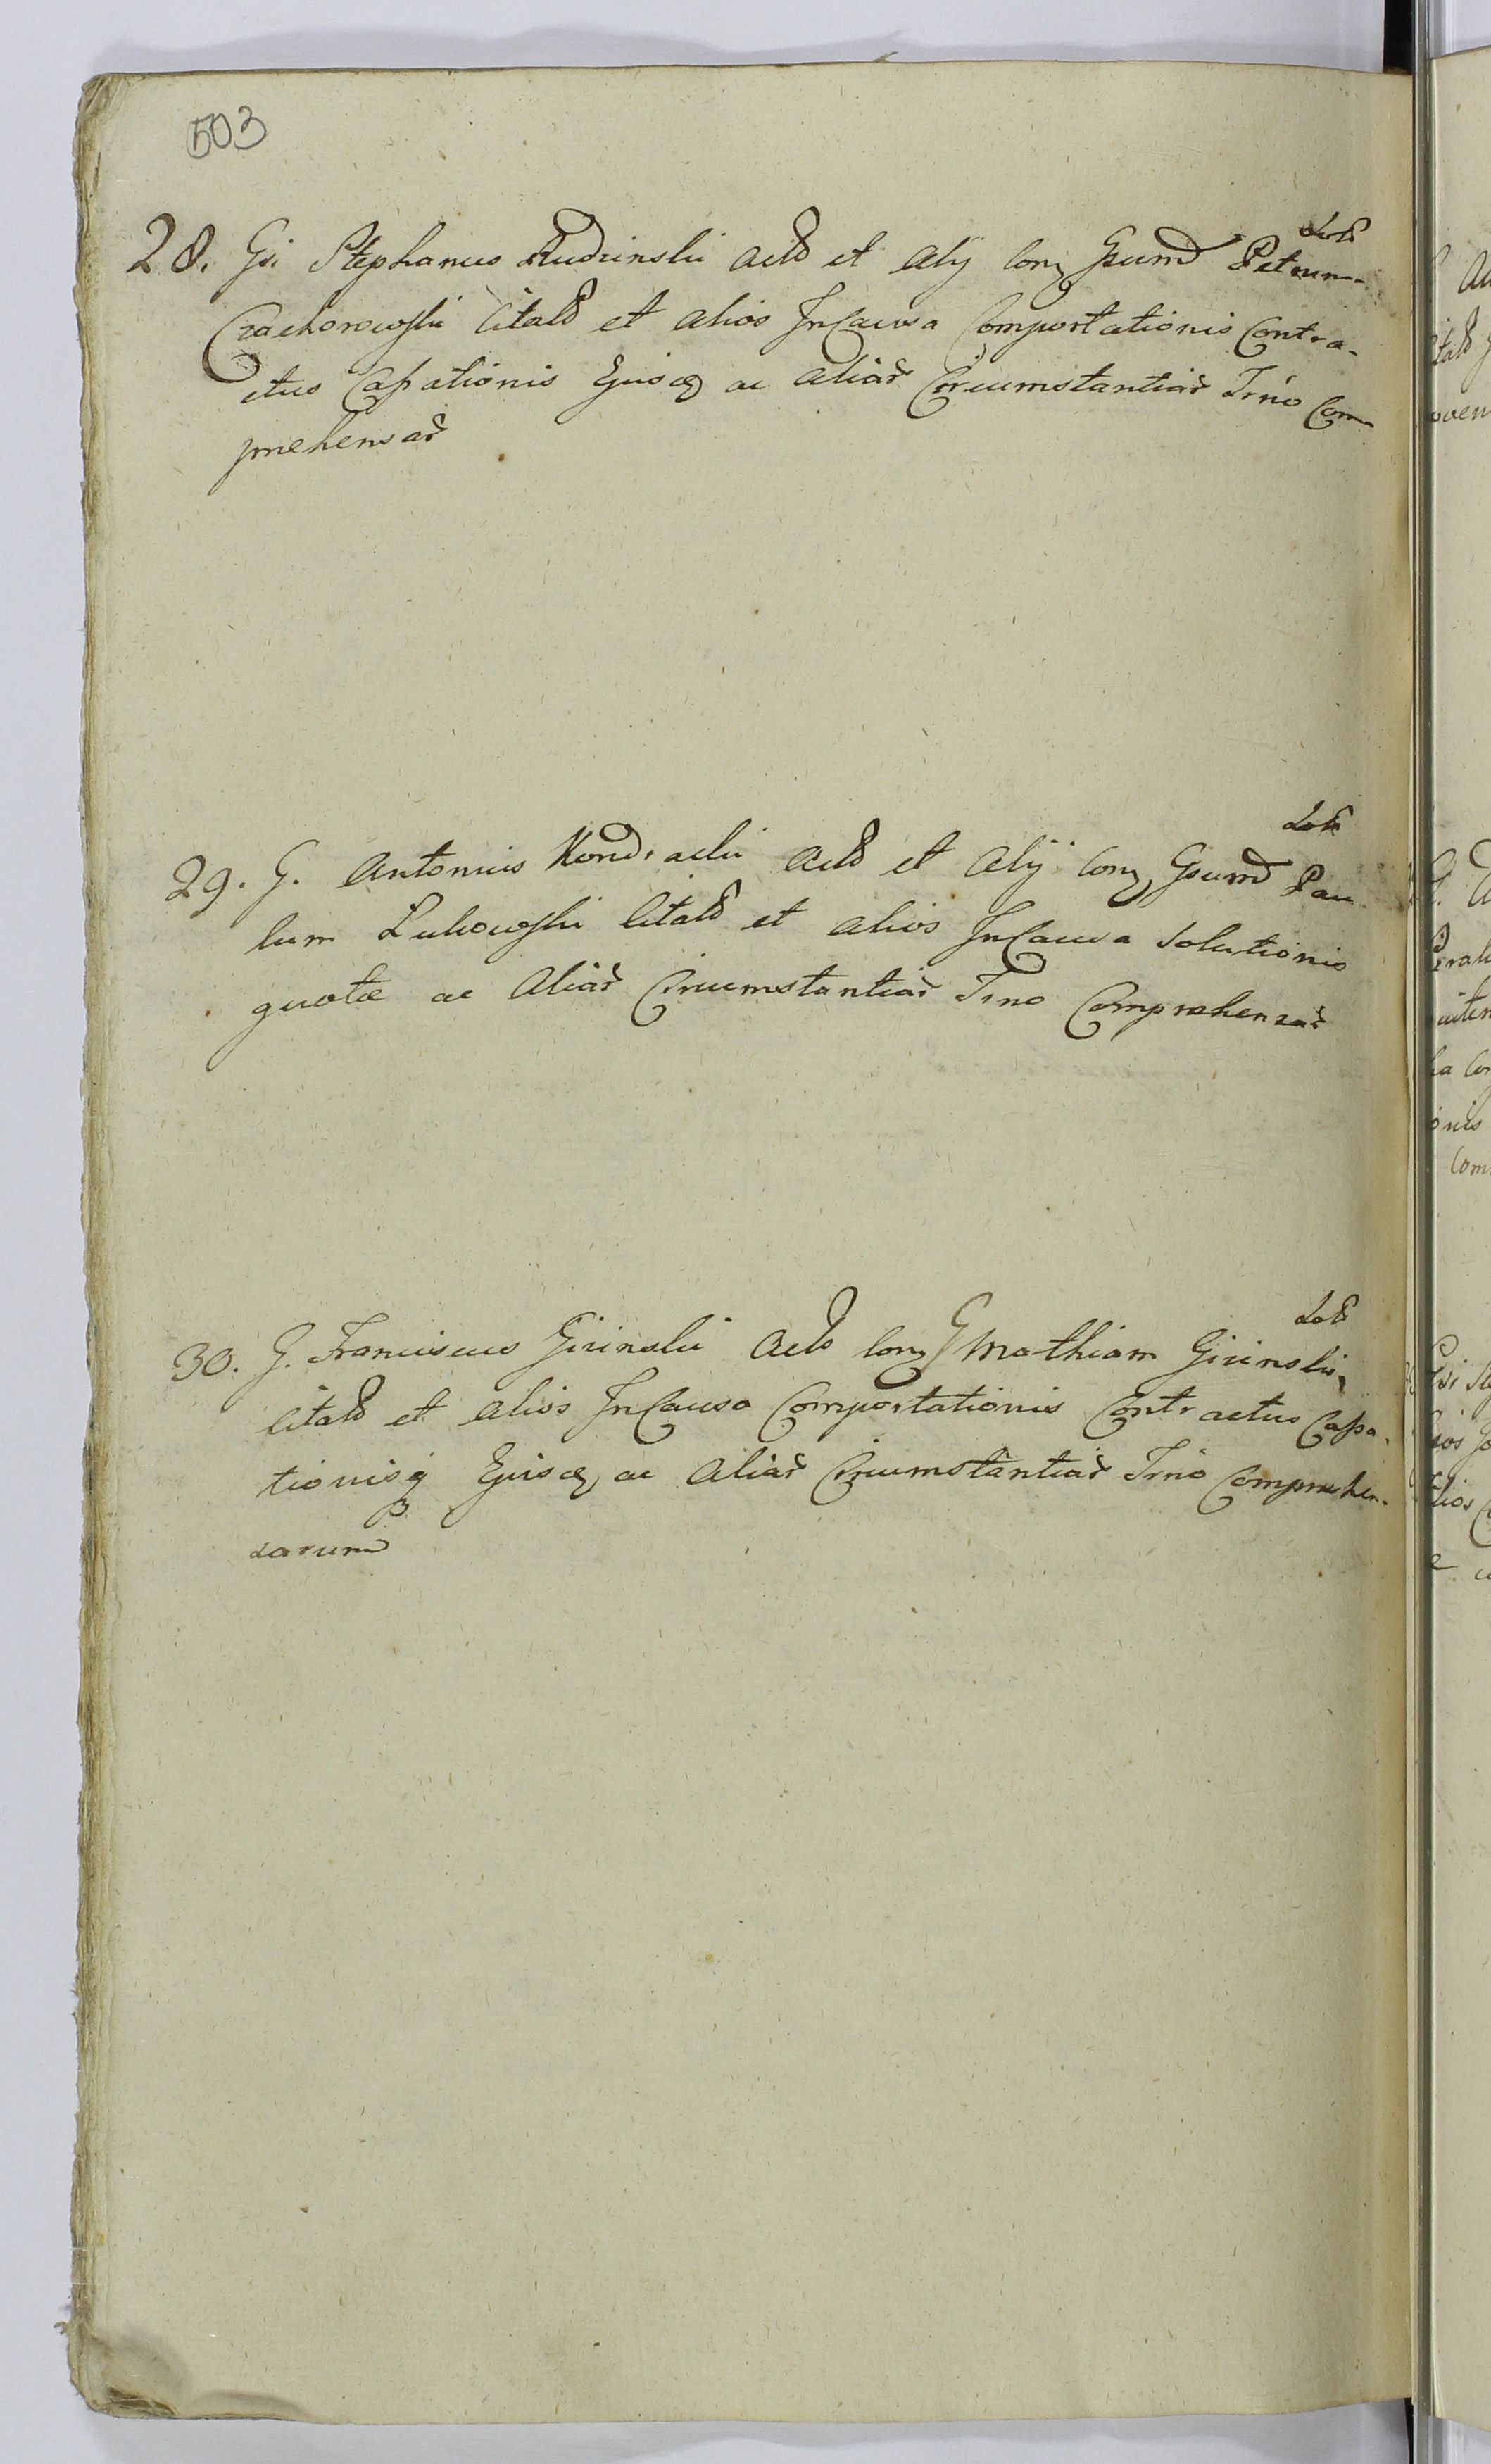 503
28. Gsi Stephanus Rudzinski Actb et Alij Con Gsum Petrum
Czachorowski Citatb et Alios In Causa Comportationis Contra-
ctus Cassationis Ejusq ac Aliar Circumstantiar Trno Com
prehensar
29. G. Antonius Kondracki Actb et Alij Con Gsum Pau
lum Lukowski Citatb et Alios In Causa Solutionis
quotæ ac Aliar Circumstantiar Trno Comprehensar
30. G. Franciscus Girinski Actb Con G Mathiam Girinski
Citatb et Alios In Causa Comportationis Contractus Cassa-
tionisq Ejusq ac Aliar Circumstantiar Trno Comprehen-
sarum